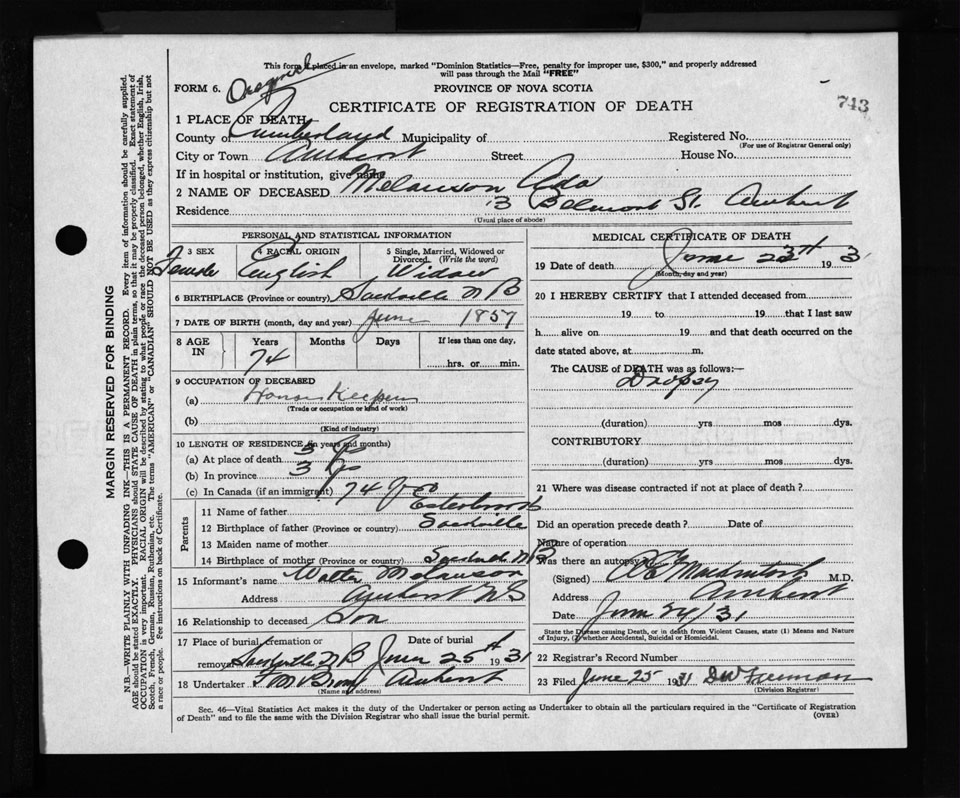 This form if placed in an envelope, marked "Dominion Statistics—Free, penalty for improper use, $300," and properly addressed
will pass through the Mail "FREE"
FORM 6. Original
PROVINCE OF NOVA SCOTIA
743
CERTIFICATE OF REGISTRATION OF DEATH
1 PLACE OF DEATH
County of Cumberland Municipality of Registered No.
(For use of Registrar General only)
City or Town Amherst Street House No.
If in hospital or institution, give name
2 NAME OF DECEASED Melanson Ada
Residence 13 Belmont St. Amherst
(Usual place of abode)
PERSONAL AND STATISTICAL INFORMATION
3 SEX Female
4 RACIAL ORIGIN English
5 Single, Married, Widowed or Divorced. (Write the word) Widow
6 BIRTHPLACE (Province or country) Sackville N B
7 DATE OF BIRTH (month, day and year) June 1857
8 AGE IN Years 74 Months Days If less than one day, ......hrs. or......min.
9 OCCUPATION OF DECEASED
(a) House Keeper
(Trade or occupation or kind of work)
(b)
(Kind of industry)
10 LENGTH OF RESIDENCE (in years and months)
(a) At place of death 3 yrs
(b) In province 3 yrs
(c) In Canada (if an immigrant) 74 yrs
Parents
11 Name of father Esterbrooks
12 Birthplace of father (Province or country) Sackville
13 Maiden name of mother
14 Birthplace of mother (Province or country) Sackville N B
15 Informant's name Walter Melanson
Address Amherst N S
16 Relationship to deceased Son
17 Place of burial, cremation or removal Sackville N B Date of burial June 25th 1931
18 Undertaker Amherst
(Name and address)
MEDICAL CERTIFICATE OF DEATH
19 Date of death June 23th 193 1
(Month, day and year)
20 I HEREBY CERTIFY that I attended deceased from
19 to 19 that I last saw
h alive on 19 and that death occurred on the
date stated above, at m.
The CAUSE of DEATH was as follows:—
Dropsy
(duration) yrs mos dys.
CONTRIBUTORY
(duration) yrs mos dys.
21 Where was disease contracted if not at place of death?
Did an operation precede death? Date of
Nature of operation
Was there an autopsy
(Signed) Mackintosh M.D.
Address Amherst
Date June 24/31
State the Disease causing Death, or in death from Violent Causes, state (1) Means and Nature of Injury, (2) whether Accidental, Suicidal or Homicidal.
22 Registrar's Record Number
23 Filed June 25 1931 Freeman
(Division Registrar)
Sec. 46—Vital Statistics Act makes it the duty of the Undertaker or person acting as Undertaker to obtain all the particulars required in the "Certificate of Registration
of Death" and to file the same with the Division Registrar who shall issue the burial permit.
(OVER)
MARGIN RESERVED FOR BINDING
N.B.—WRITE PLAINLY WITH UNFADING INK—THIS IS A PERMANENT RECORD. Every item of information should be carefully supplied.
AGE should be stated EXACTLY. PHYSICIANS should STATE CAUSE OF DEATH in plain terms, so that it may be properly classified. Exact statement of
OCCUPATION is very important. RACIAL ORIGIN will be described by stating to what people or race the deceased person belonged, whether English, Irish,
Scotch, French, German, Russian, Ruthenian, etc. The terms "AMERICAN" or "CANADIAN" SHOULD NOT BE USED as they express citizenship but not
a race or people. See instructions on back of Certificate.